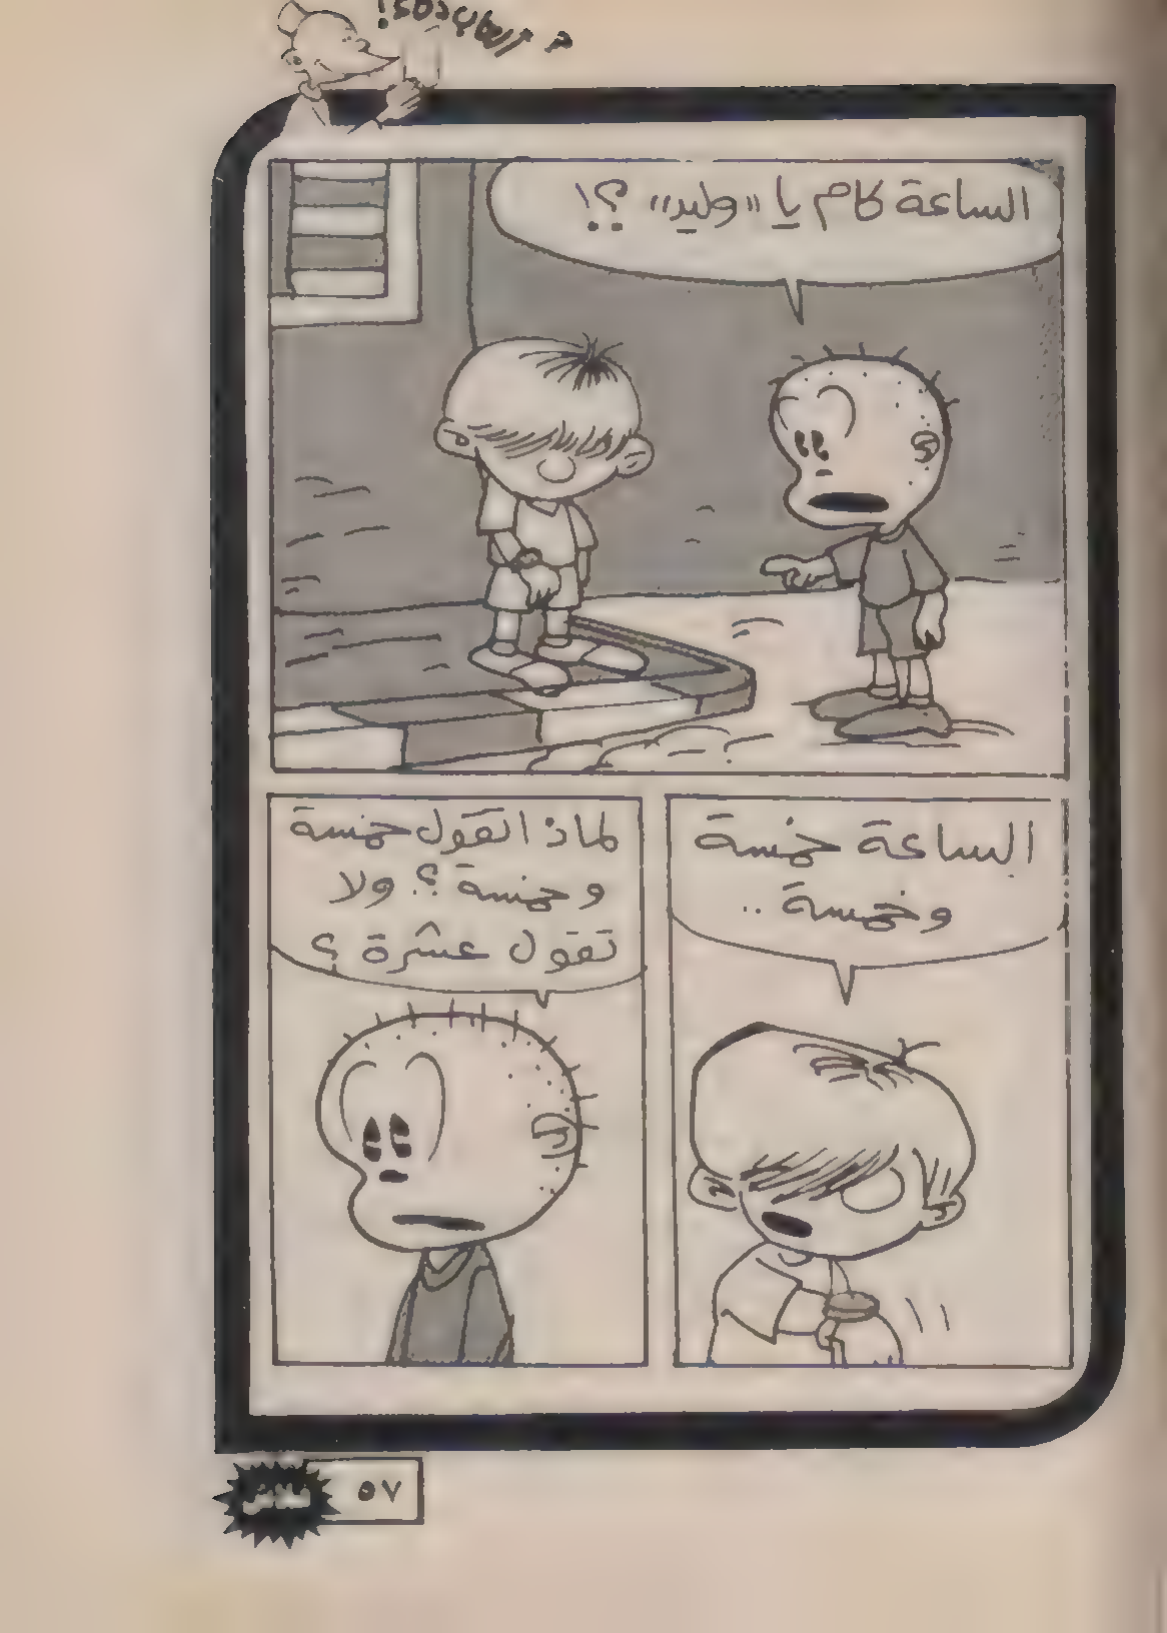 الساعة كام يا "وليد" ؟!
الساعة خمسة
وخمسة ..
لماذا تقول خمسة
وخمسة ؟. ولا
تقول عشرة ؟
فلاش
٥٧